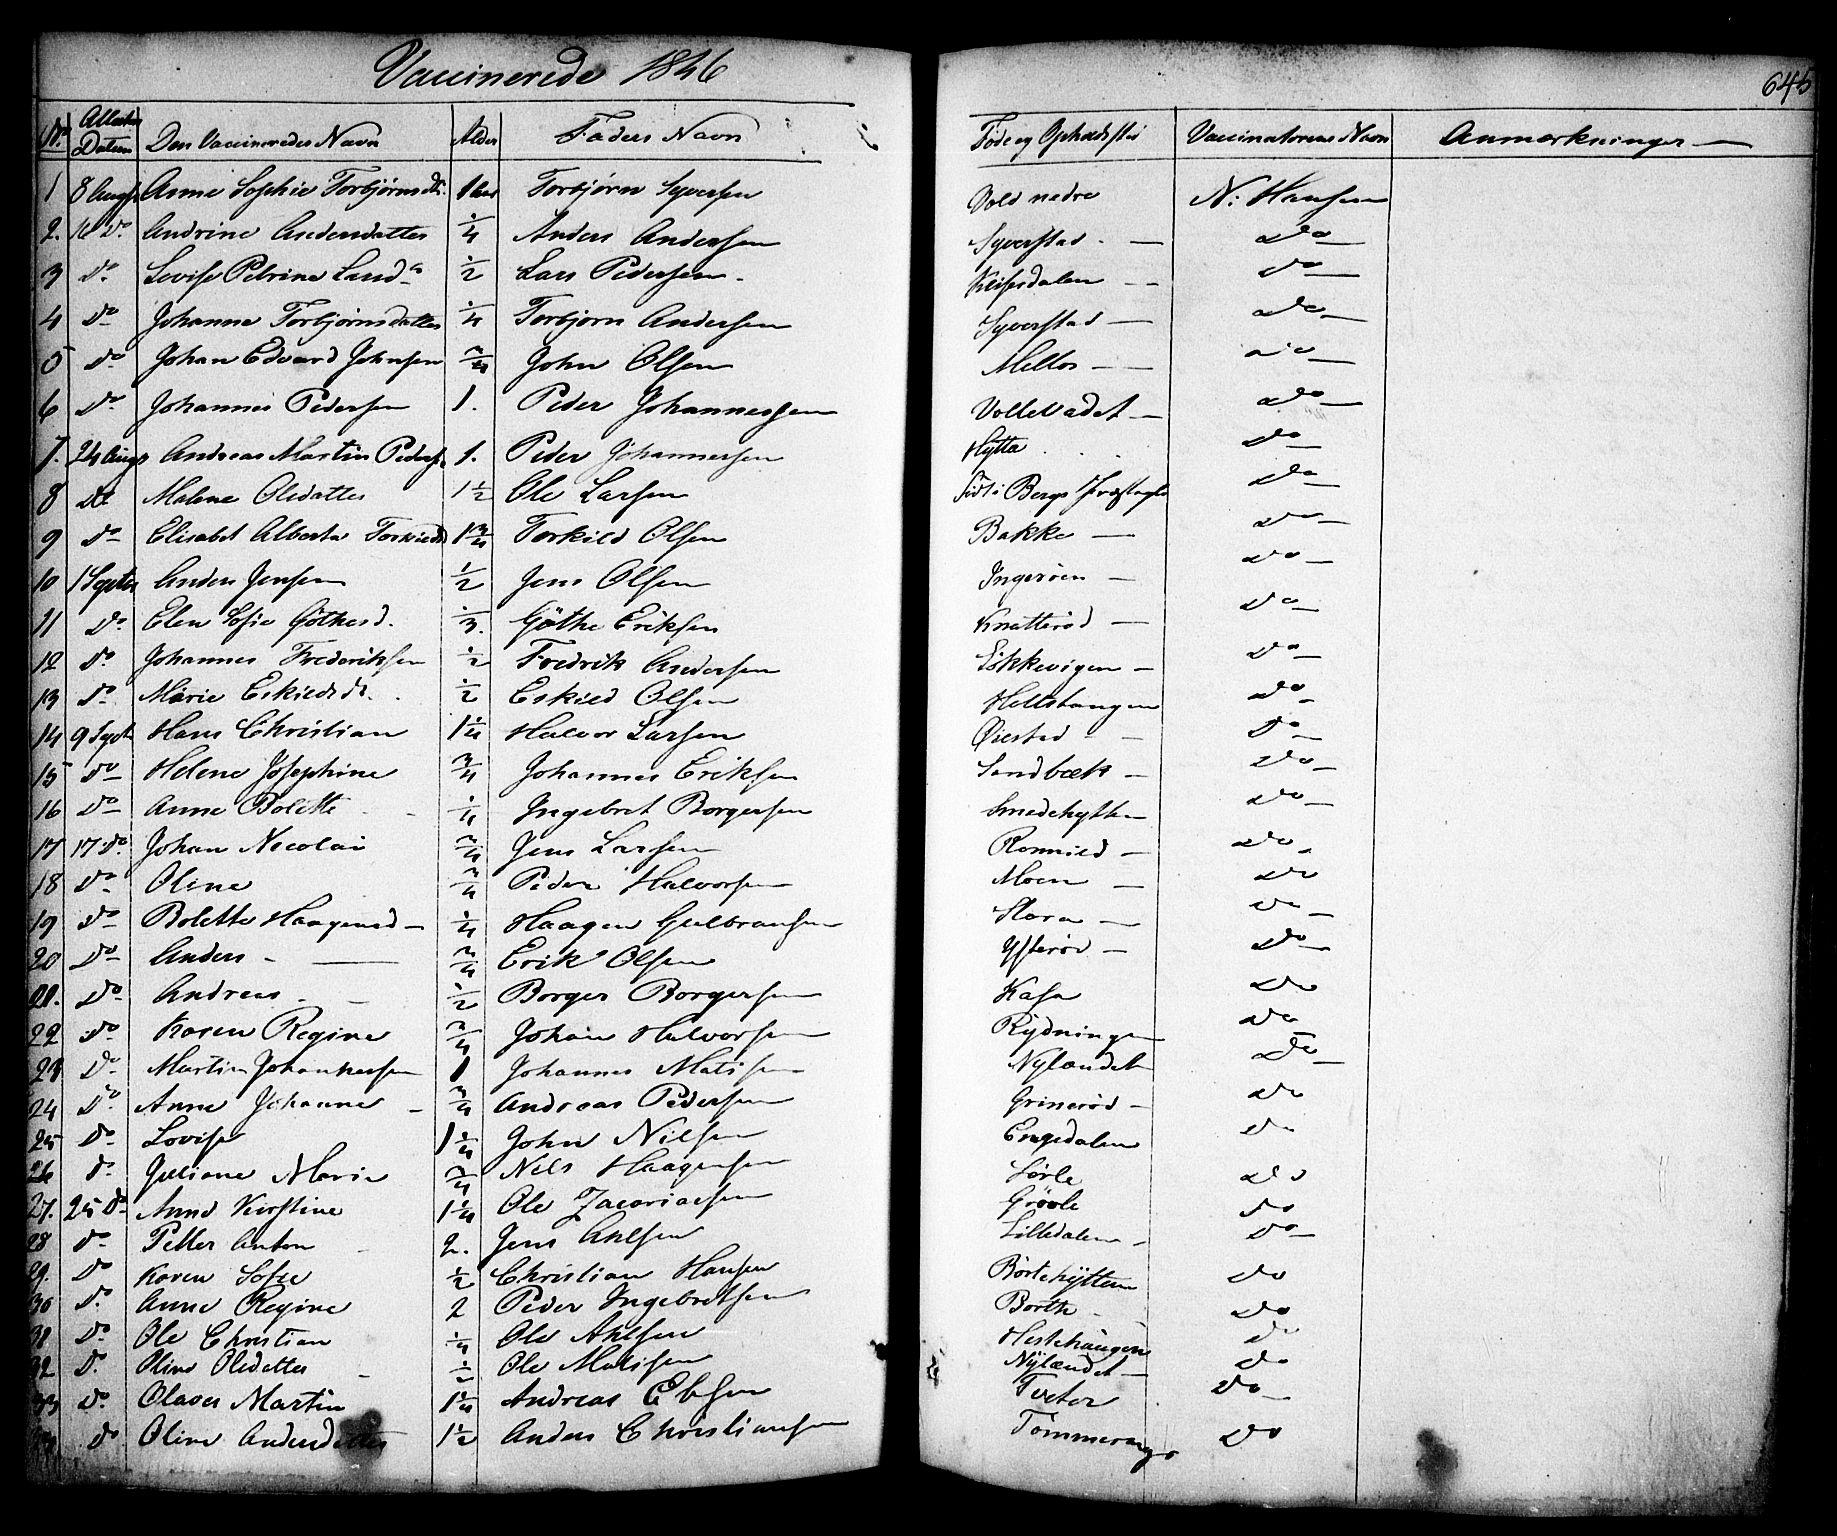 Vaccinerede 1846
645
No. Attestens Datum Den Vaccineredes Navn Alder Faders Navn Føde og Opholdsted Vaccinatorens Navn Anmærkninger
1 8 Augst Anne Sophie Torbjørnsdtr. 1 Torbjørn Syversen Vold nedre N: Hansen
2. 16 Do Andrine Andersdatter 1/4 Anders Andersen Syverstad - Do
3 Do Lovise Petrine Larsd 1/2 Lars Pedersen Do
4 Do Johanne Torbjørnsdatter 1/4 Torbjørn Andersen Syverstad Do
5 Do Johan Edvard Johnsen 3/4 John Olsen Mellos Do
6 Do Johannes Pedersen 1. Peder Johannessen Do
7. 24 Augs Andreas Martin Peders 1. Peder Johannessen Hytta Do
8 Do Malene Olsdatter 1 1/2 Ole Larsen Født i Bergs Præstegld Do
9 Do Elisabet Alberta Torkildsd 1 3/4 Torkild Olsen Bakke Do
10 1 Septbr Anders Jensen 1/2 Jens Olsen Ingerøen Do
11 Do Elen Sofie Göthesd. 1/3. Göthe Eriksen Knatterød Do
12 Do Johannes Frederiksen 1/2 Fredrik Andersen Løkkevigen Do
13 Do Marie Eskildsdr. 1/2 Eskild Olsen Hellstangen Do
14 9 Sept Hans Christian 1 1/4 Halvor Larsen Øiestad Do
15 Do Helene Josephine 3/4 Johannes Eriksen Sandbæk Do
16 Do Anne Bolette 1/4 Ingebret Borgersen Smedehytten Do
17 17 Do. Johan Necolai 3/4 Jens Larsen Romnild Do
18 Do Oline 3/4 Peder Halvorsen Moen Do
19 Do Bolette Haagensd 1/4 Haagen Gulbransen Do
20 Do Anders 3/4 Erik Olsen Ysterød Do
21. Do Andreas 1/2 Borger Borgersen Kasa Do
22 Do Karen Regine 3/4 Johan Halvorsen Rydningen Do
23 Do Martin Johannessen 1 Johannes Matisen Nylændet Do
24 Do Anne Johanne 3/4 Andreas Pedersen Grinerød Do
25 Do Lovise 1 1/4 John Nilsen Engedalen Do
26 Do Juliane Marie 3/4 Nils Haagensen Sørle Do
27. 25 Do Anne Kirstine 1 1/4 Ole Zacariasen Grøvle Do
28 Do Petter Anton 2. Jens Ahlsen Lilledalen Do
29. Do Karen Sofie 1/2 Christian Hansen Børtehytten Do
30 Do Anne Regine 2 Peder Ingebretsen Do
31 Do Ole Christian 1/4 Ole Ahlsen Hestehaugen Do
32 D. Oline Olsdatter 1/2 Ole Matisen Nylændet Do
33 Do Olaves Martin 1 1/4 Andreas Ebsen Tveter Do
34 Do Oline Andersdatter 1 1/2 Anders Christiansen Do